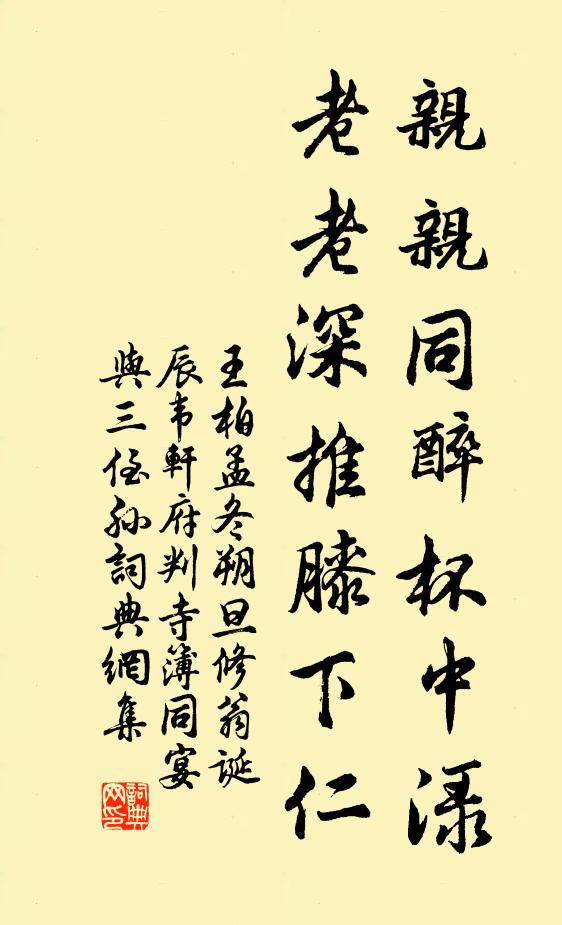 親親同醉杯中渌
老老深推膝下仁
王柏孟冬朔旦修翁誕
辰韦軒府判寺簿同宴
與三侄孙詞典網集
詞典
网印